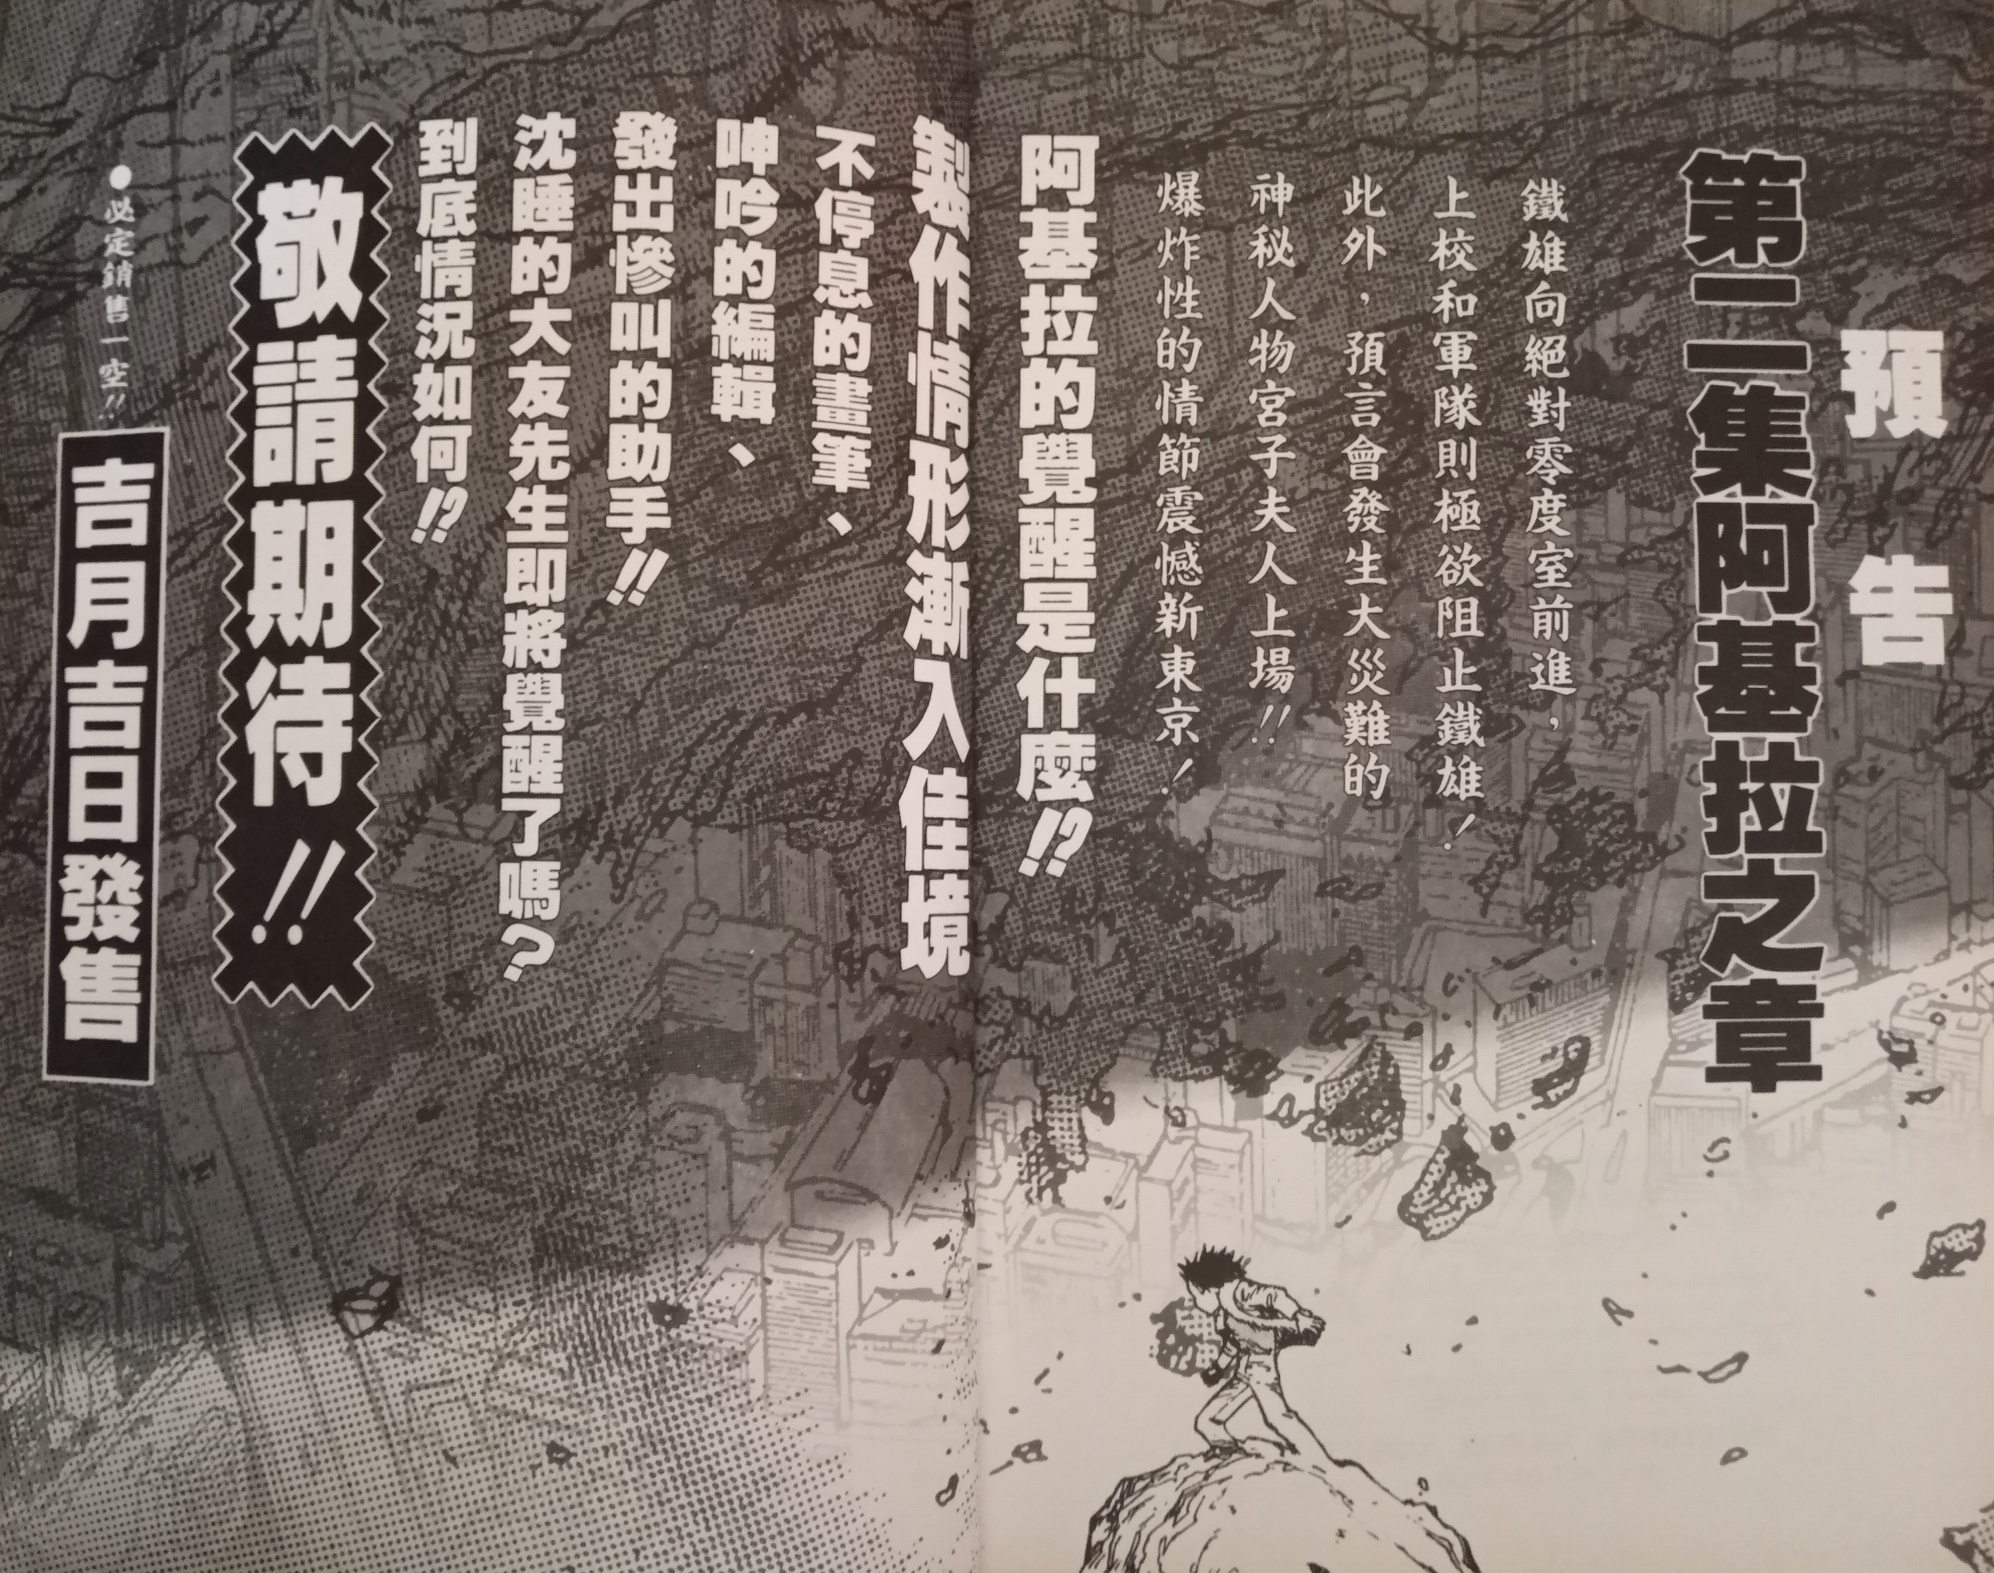 預告
第二集阿基拉之章
鐵雄向絕對零度室前進，
上校和軍隊則極欲阻止鐵雄！
此外，預言會發生大災難的
神秘人物宮子夫人上場!!
爆炸性的情節震憾新東京！
阿基拉的覺醒是什麼!?
製作情形漸入佳境
不停息的畫筆、
呻吟的編輯、
發出慘叫的助手!!
沈睡的大友先生即將覺醒了嗎？
到底情況如何!?
敬請期待!!
●必定銷售一空!!
吉月吉日發售